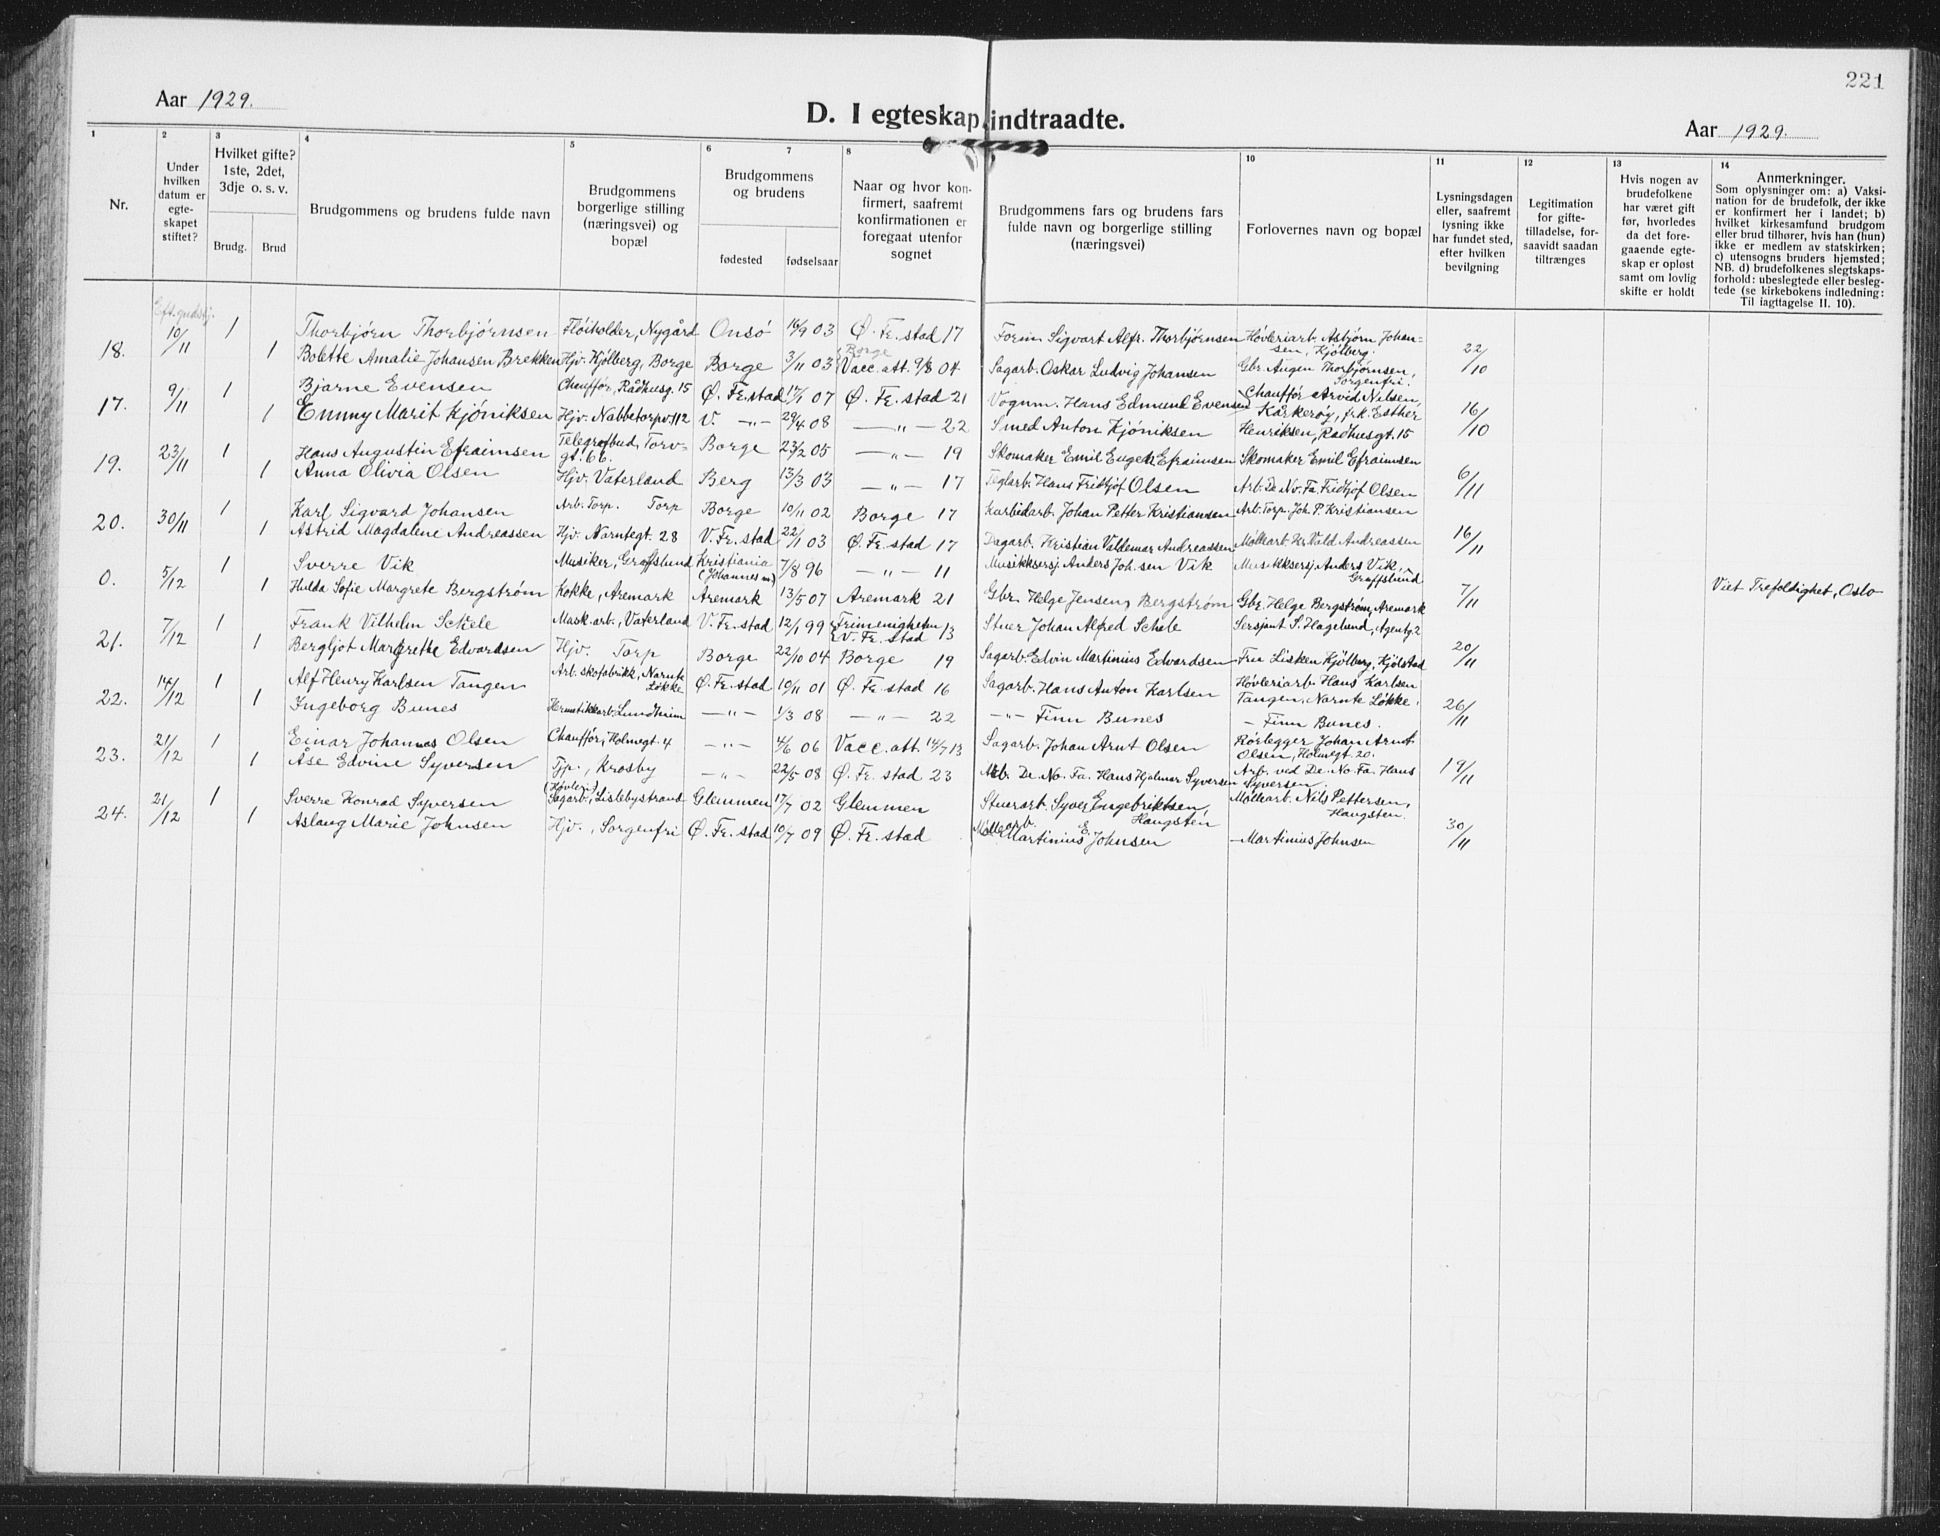 221
Aar 1929.
D. I egteskap indtraadte.
Aar 1929.
1 2 3 4 5 6 7 8 10 11 12 13 14
Nr.
Under hvilken datum er egte-skapet stiftet?
Hvilket gifte? 1ste, 2det, 3dje o. s. v.
Brudg. Brud
Brudgommens og brudens fulde navn
Brudgommens borgerlige stilling (næringsvei) og bopæl
Brudgommens og brudens
fødested fødselsaar
Naar og hvor kon-firmert, saafremt konfirmationen er foregaat utenfor sognet
Brudgommens fars og brudens fars fulde navn og borgerlige stilling (næringsvei)
Forlovernes navn og bopæl
Lysningsdagen eller, saafremt lysning ikke har fundet sted, efter hvilken bevilgning
Legitimation for gifte-tilladelse, for-saavidt saadan tiltrænges
Hvis nogen av brudefolkene har været gift før, hvorledes da det fore-gaaende egte-skap er opløst samt om lovlig skifte er holdt
Anmerkninger.
Som oplysninger om: a) Vaksi-nation for de brudefolk, der ikke er konfirmert her i landet; b) hvilket kirkesamfund brudgom eller brud tilhører, hvis han (hun) ikke er medlem av statskirken; c) utensogns bruders hjemsted; NB. d) brudefolkenes slegtskaps-forhold: ubeslegtede eller besleg-tede (se kirkebokens indledning: Til iagttagelse II. 10).
18. 10/11 1 Thorbjørn Thorbjørnsen Fløiholder, Nygård Onsö 16/9 03 Ø. Fr. stad 17 Form. Sigvart Alfr. Thorbjörnsen Høvleriarb. Asbjørn Johan-sen, Kjølberg.
1 Bolette Amalie Johansen Brekken Hjv. Kjølberg, Borge Borge 3/11 03 Borge Vacc. att. 9/8 04 Sagarb. Oskar Ludvig Johansen Gbr. Augen Thorbjørnsen, Sorgenfri. 22/10
17. 9/11 1 Bjarne Evensen Chauffør, Rådhusg. 15 Ø. Fr. stad 17/1 07 Ø. Fr. stad 21 Vognm. Hans Edmund Evensen Chauffør Arvid Nilsen, Kråkerøy, frk. Esther
1 Emmy Marit Kjöniksen Hjv. Nabbetorpv. 112 V. —„— 29/4 08 —„— 22 Smed Anton Kjöniksen Henriksen, Rådhusgt. 15 16/10
19. 23/11 1 Hans Augustin Efraimsen Telegrafbud, Torv-gt. 66. Borge 23/2 05 —„— 19 Skomaker Emil Eugen Efraimsen Skomaker Emil Efraimsen
1 Anna Olivia Olsen Hjv. Vaterland Berg 13/3 03 —„— 17 Teglarb. Hans Fridtjof Olsen Arb. De No. Fa. Fridtjof Olsen 6/11
20. 30/11 1 Karl Sigvard Johansen Arb. Torp. Torp Borge 10/11 02 Borge 17 Karbidarb. Johan Petter Kristiansen Arb. Torp. Joh. P. Kristiansen
1 Astrid Magdalene Andreassen Hjv. Narntegt. 28 V. Fr. stad 22/1 03 Ø. Fr. stad 17 Dagarb. Kristian Valdemar Andreassen Møllearb. Kr. Vald Andreassen 16/11
0. 5/12 1 Sverre Vik Musiker, Graffslund Kristiania (Johannes m) 7/8 96 —„— 11 Musikksersj. Anders Joh.sen Vik Musikksersj. Anders Vik, Graffslund
1 Hulda Sofie Margrete Bergström Kokke, Aremark Aremark 13/5 07 Aremark 21 Gbr. Helge Jensen Bergström Gbr. Helge Bergström, Aremark 7/11 Viet Trefoldighet, Oslo
21. 7/12 1 Frank Vilhelm Schele Mask.arb., Vaterland V. Fr. stad 12/1 99 Frimenigheten V. Fr. stad 13 Stuer Johan Alfred Schele Sersjant S. Hagelund, Agentg. 2
1 Bergljot Margrethe Edvardsen Hjv. Torp Borge 22/10 04 Borge 19 Sagarb. Edvin Martinius Edvardsen Fru Lisken Kjølberg, Kjölstad 20/11
22. 14/12 1 Alf Henry Karlsen Tangen Arb. skofabrikk, Narnte Løkke Ø. Fr. stad 10/11 01 Ø. Fr. stad 16 Sagarb. Hans Anton Karlsen Høvleriarb. Hans Karlsen Tangen, Narnte Løkke.
1 Ingeborg Bunes Hermetikkarb. Lundheim —„— 1/3 08 —„— 22 —„— Finn Bunes — Finn Bunes. 26/11
23. 21/12 1 Einar Johannes Olsen Chauffør, Holmegt. 4 —„— 4/6 06 Vacc. att. 14/7 13 Sagarb. Johan Arnt Olsen Rørlegger Johan Arnt Olsen, Holmegt. 20.
1 Åse Edvine Syversen Tjp., Krosby —„— 22/5 08 Ø. Fr. stad 23 Arb. De No. Fa. Hans Hjalmar Syversen Arb. ved De No. Fa. Hans Syversen. 19/11
24. 21/12 1 Sverre Konrad Syversen (Høvleri) Sagarb., Lislebystrand Glemmen 17/7 02 Glemmen Stuerarb. Syver Engebriktsen, Haugsten Møllearb. Nils Pettersen, Haugsten.
1 Aslaug Marie Johnsen Hjv., Sorgenfri Ø. Fr. stad 10/7 09 Ø. Fr. stad Møllearb. Martinius E. Johnsen — Martinius Johnsen 30/11